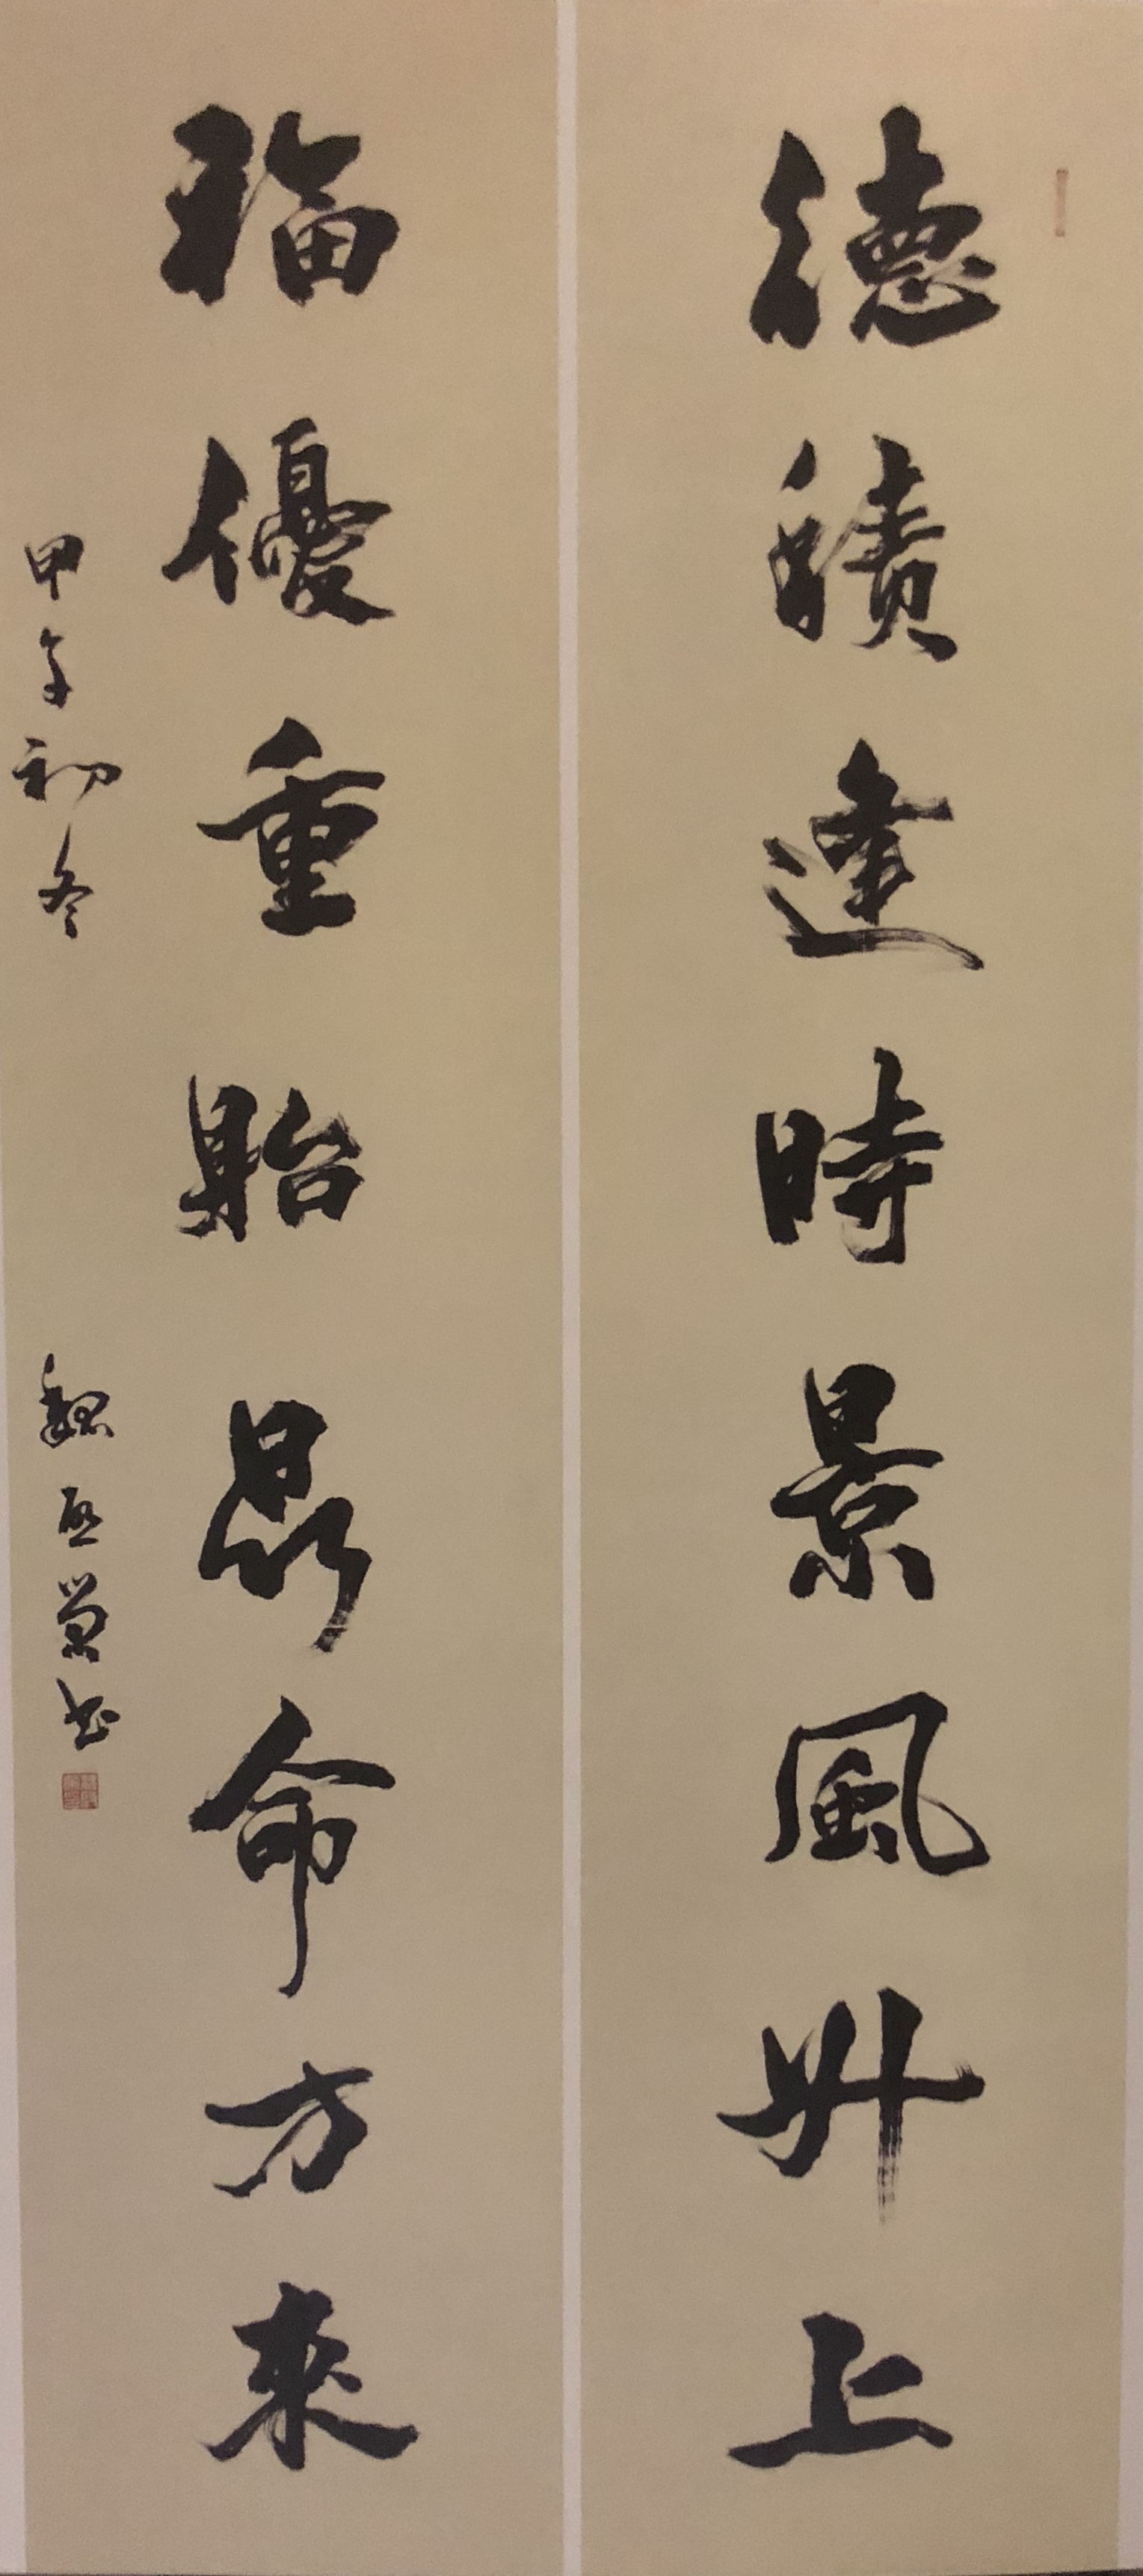 德績逢時景風升上
福優重貽昆命方來
甲午初冬
魏啓書